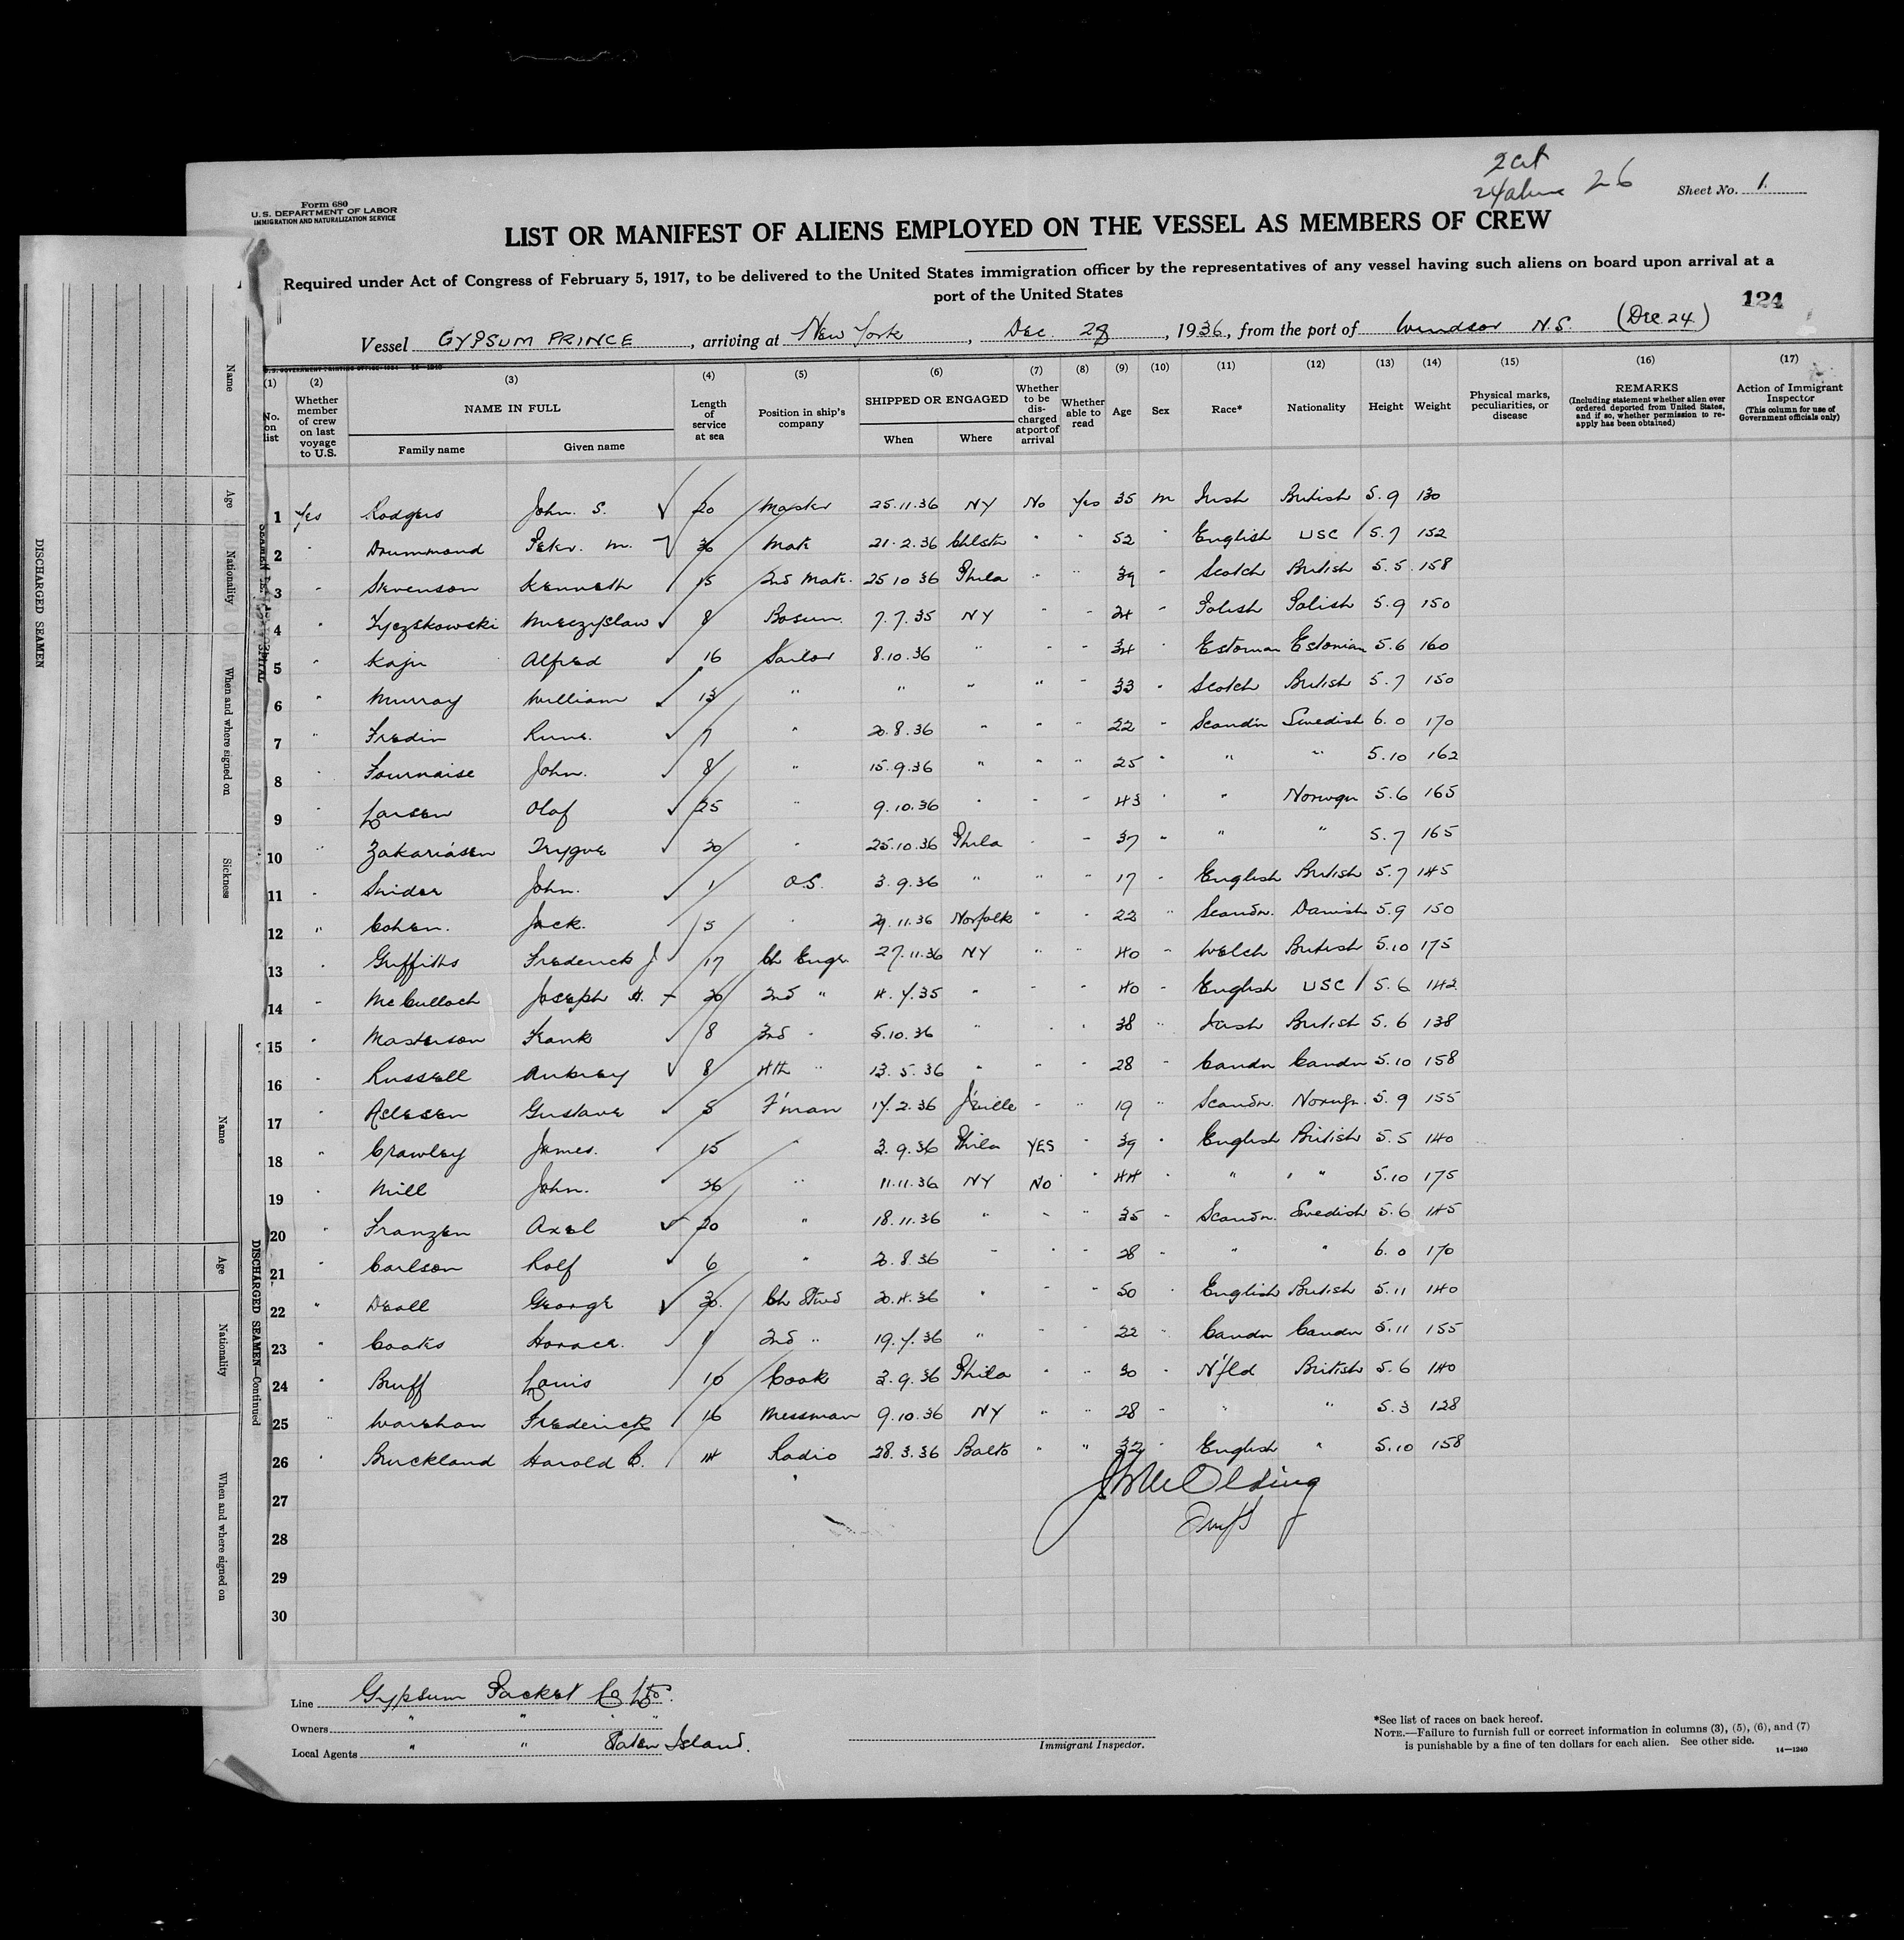 2 cit
24 aliens 26
Sheet No. 1.
Form 680
U.S. DEPARTMENT OF LABOR
IMMIGRATION AND NATURALIZATION SERVICE
LIST OR MANIFEST OF ALIENS EMPLOYED ON THE VESSEL AS MEMBERS OF CREW
Required under Act of Congress of February 5, 1917, to be delivered to the United States immigration officer by the representatives of any vessel having such aliens on board upon arrival at a
port of the United States
124
Vessel GYPSUM PRINCE, arriving at New York, Dec. 28, 1936, from the port of Windsor N.S. (Dec. 24)
(1) (2) (3) (4) (5) (6) (7) (8) (9) (10) (11) (12) (13) (14) (15) (16) (17)
No. on list
Whether member of crew on last voyage to U.S.
NAME IN FULL
Family name
Given name
Length of service at sea
Position in ship's company
SHIPPED OR ENGAGED
When
Where
Whether to be discharged at port of arrival
Whether able to read
Age
Sex
Race*
Nationality
Height
Weight
Physical marks, peculiarities, or disease
REMARKS
(Including statement whether alien ever ordered deported from United States, and if so, whether permission to re-apply has been obtained)
Action of Immigrant Inspector
(This column for use of Government officials only)
1 Yes Rodgers John. S. √ 20 Master 25.11.36 NY No Yes 35 m Irish British 5.9 130
2 " Drummond Peter. M. √ 36 Mate 21.2.36 Chlstn " " 52 " English USC / 5.7 152
3 " Stevenson Kenneth / 15 2nd Mate. 25 10 36 Phila " " 39 " Scotch British 5.5 158
4 " Zyczskowski Mieczyslaw √ 8 Bosun. 7.7.35 NY " " 24 " Polish Polish 5.9 150
5 " Kaju Alfred √ 16 Sailor 8.10.36 " " " 34 " Estonian Estonian 5.6 160
6 " Murray William √ 13 " " " " " 33 " Scotch British 5.7 150
7 " Fredin Rune. √ 7 " 20.8.36 " " " 22 " Scandn Swedish 6.0 170
8 " Fournaise John. √ 8 " 15.9.36 " " " 25 " " " 5.10 162
9 " Larsen Olaf √ 25 " 9.10.36 " " " 43 " " Norwgn 5.6 165
10 " Zakariasen Trygve √ 20 " 25.10.36 Phila " " 37 " " " 5.7 165
11 " Snider John. √ 1 O.S. 3.9.36 " " " 17 " English British 5.7 145
12 " Cohen. Jack. √ 5 " 29.11.36 Norfolk " " 22 " Scandn. Danish 5.9 150
13 " Griffiths Frederick J. √ 17 Ch Engr. 27.11.36 NY " " 40 " Welch British 5.10 175
14 " McCulloch Joseph H. + 20 2nd " 4.7.35 " " " 40 " English USC / 5.6 142
15 " Masterson Frank √ 8 3rd " 5.10.36 " " " 38 " Irish British 5.6 138
16 " Russell Aubrey √ 8 4th " 13.5.36 " " " 28 " Candn Candn 5.10 158
17 " Gustave √ 5 F'man 17.2.36 J'ville " " 19 " Scandn. Norwgn. 5.9 155
18 " Crawley James. √ 15 " 3.9.36 Phila YES " 39 " English British 5.5 140
19 " Mill John. √ 26 " 11.11.36 NY NO " 44 " " " 5.10 175
20 " Franzen Axel √ 20 " 18.11.36 " " " 35 " Scandn. Swedish 5.6 145
21 " Carlson Rolf √ 6 " 20.8.36 " " " 28 " " " 6.0 170
22 " Deall George √ 30. Ch Stwd 20.4.36 " " " 50 " English British 5.11 140
23 " Cooks Horace. / 1 2nd " 19.7.36 " " " 22 " Candn Candn 5.11 155
24 " Bruff Louis / 10 Cook 3.9.36 Phila " " 30 " N'fld British 5.6 140
25 " Wareham Frederick / 16 Messman 9.10.36 NY " " 28 " " " 5.3 128
26 " Bruckland Harold C. / 14 Radio 28.3.36 Balto " " 32 " English " 5.10 158
27
28
29
30
Line Gypsum Packet Co Ltd.
Owners " " " "
Local Agents " " Staten Island.
Immigrant Inspector.
*See list of races on back hereof.
NOTE.—Failure to furnish full or correct information in columns (3), (5), (6), and (7)
is punishable by a fine of ten dollars for each alien. See other side.
14—1240
DISCHARGED SEAMEN
Name
Age
Nationality
When and where signed on
Sickness
DISCHARGED SEAMEN—Continued
Name
Age
Nationality
When and where signed on